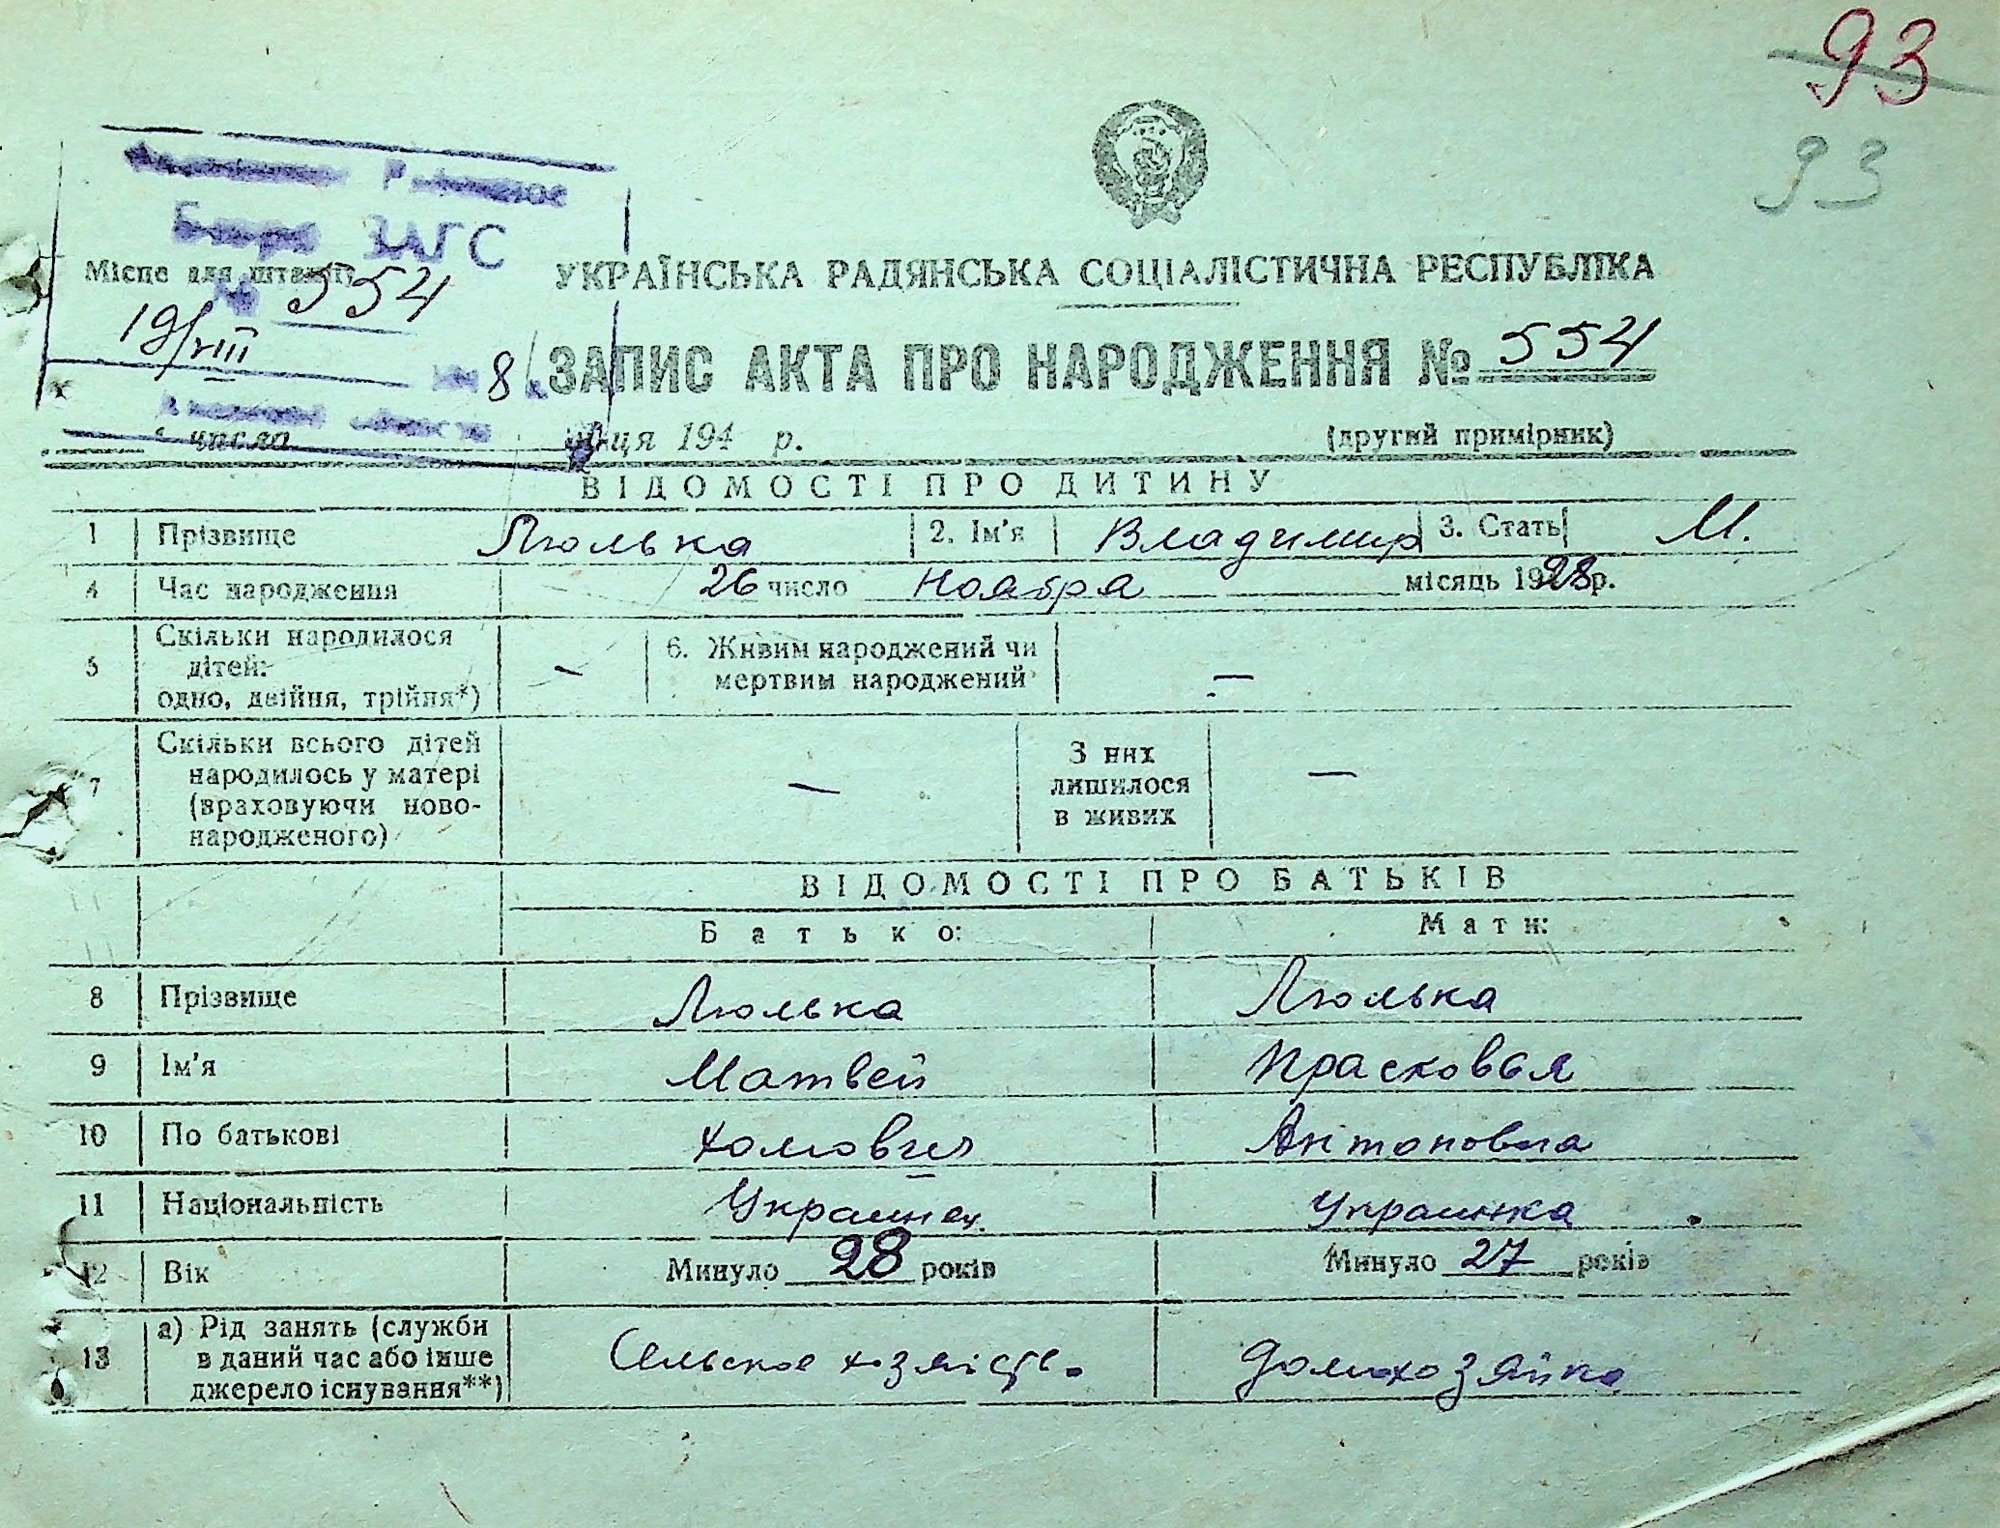 93
93
Бюро ЗАГС
Місце для штампу
№ 554
19/VIII
8
число
місяця 194 р.
УКРАЇНСЬКА РАДЯНСЬКА СОЦІАЛІСТИЧНА РЕСПУБЛІКА
ЗАПИС АКТА ПРО НАРОДЖЕННЯ № 554
(другий примірник)
ВІДОМОСТІ ПРО ДИТИНУ
1 Прізвище Люлька 2. Ім'я Владимир 3. Стать М.
4 Час народження 26 число Ноября місяць 1928 р.
5 Скільки народилося дітей: одно, двійня, трійня*) — 6. Живим народжений чи мертвим народжений —
7 Скільки всього дітей народилось у матері (враховуючи ново-народженого) — З них лишилося в живих —
ВІДОМОСТІ ПРО БАТЬКІВ
Батько: Мати:
8 Прізвище Люлька Люлька
9 Ім'я Матвей Прасковья
10 По батькові Хомович Антоновна
11 Національність Украинец Украинка
12 Вік Минуло 28 років Минуло 27 років
13 а) Рід занять (служби в даний час або інше джерело існування**) Сельское хозяйство Домохозяйка